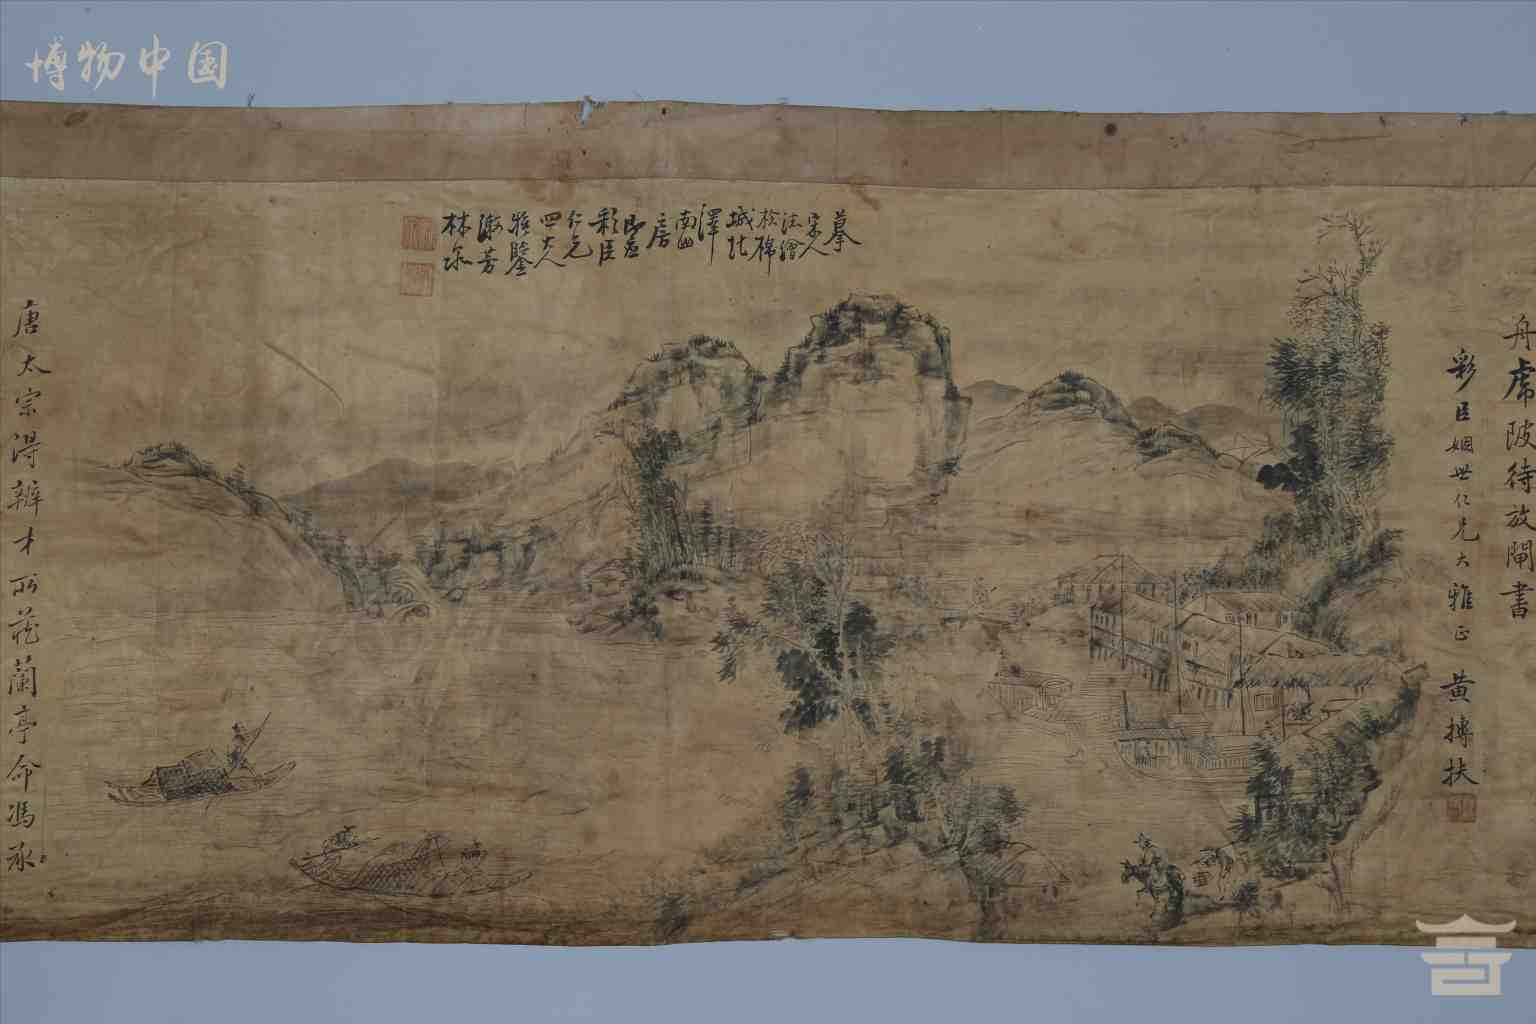 博物中国
舟席陂待放閘書
彩臣姻世仁兄大雅正 黄摶扶
摹
宋人
法繪
於棉
城北
澤
南山
房
即應
彩臣
仁兄
四大人
雅鑒
漱芳
林
唐太宗得辨才所藏蘭亭命馮承